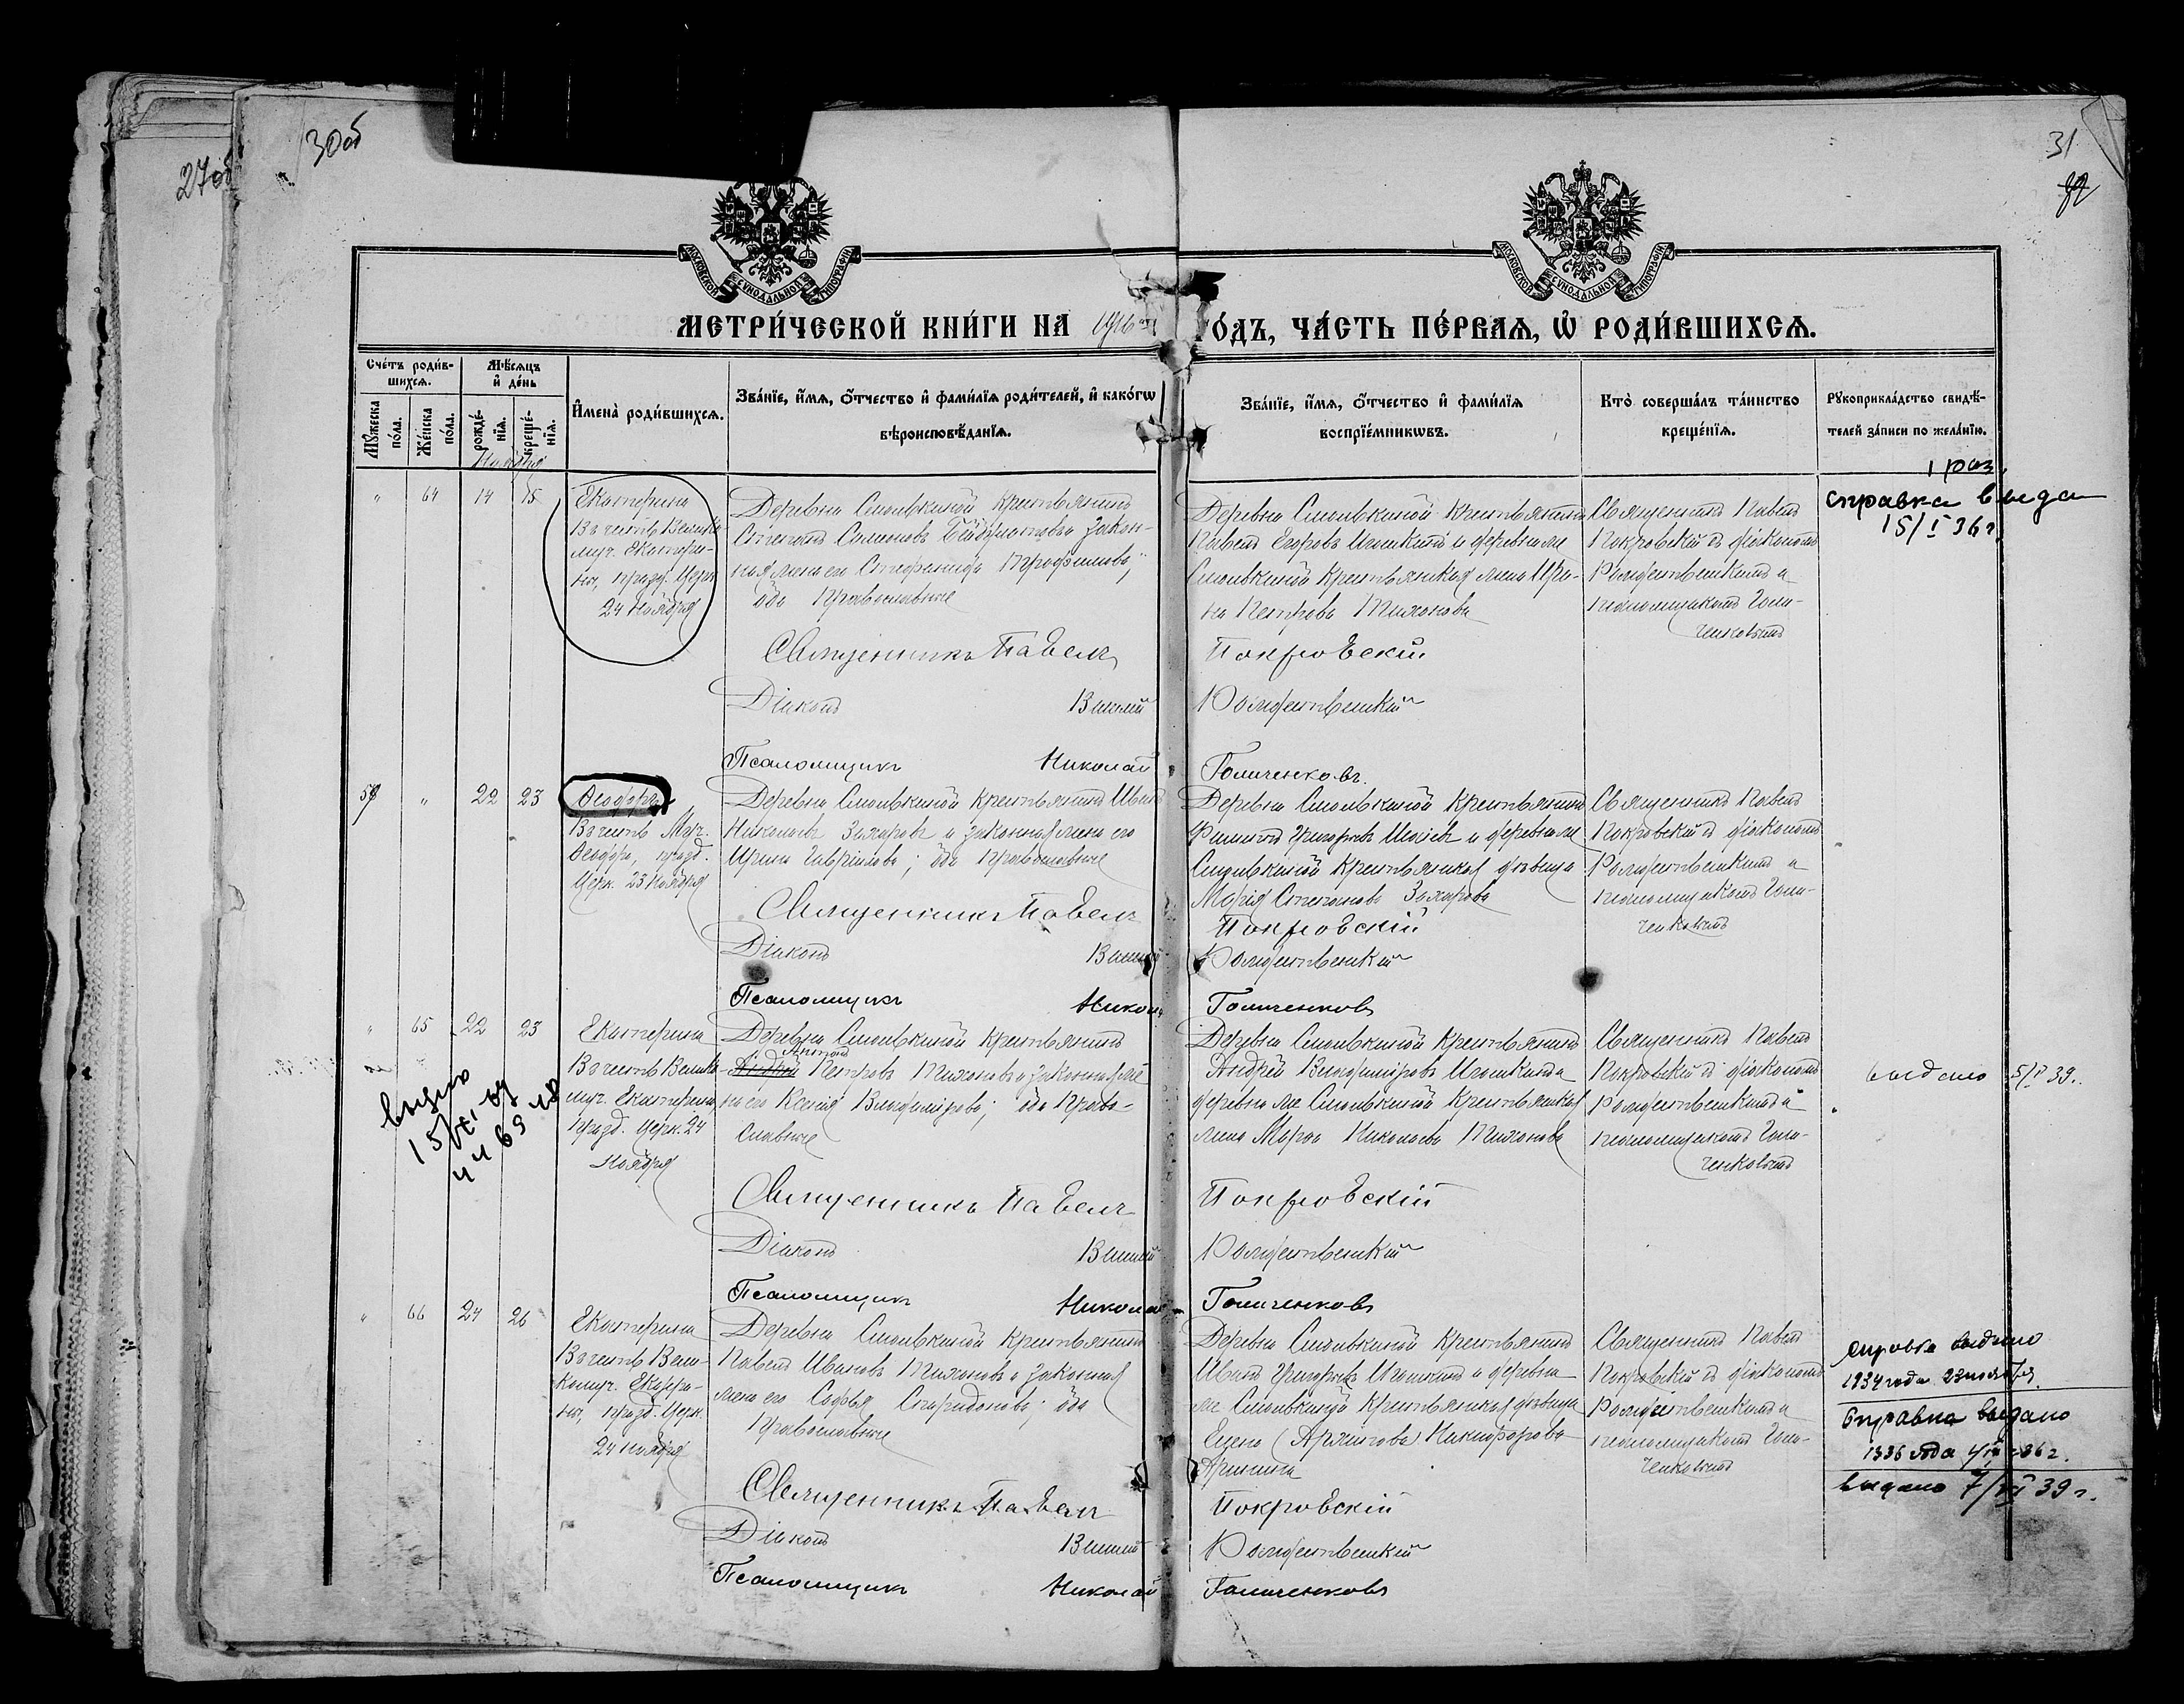 30об
27об
31
МОСКОВСКОЙ СѴНОДАЛЬНОЙ ТИПОГРАФІИ
МОСКОВСКОЙ СѴНОДАЛЬНОЙ ТИПОГРАФІИ
МЕТРИ́ЧЕСКОЙ КНИ́ГИ НА
ГО́ДЪ, ЧА́СТЬ ПЕ́РВАѦ, Ѡ҆ РОДИ́ВШИХСѦ.
Сче́тъ роди́в-
шихсѧ.
Мꙋ́жеска
по́ла.
Же́нска
по́ла.
Мѣ́сѧцъ
и҆ де́нь
рожде́-
нїѧ.
креще́-
нїѧ.
И҆мена̀ роди́вшихсѧ.
Зва́нїе, и҆́мѧ, ѻ҆́тчество и҆ фами́лїѧ роди́телей, и҆ како́гѡ
вѣроисповѣ́данїѧ.
Зва́нїе, и҆́мѧ, ѻ҆́тчество и҆ фами́лїѧ
воспрїе́мникѡвъ.
Кто̀ соверша́лъ та́инство
креще́нїѧ.
Рꙋкоприкла́дство свидѣ́-
телей за́писи по жела́нїю.
Ноября
1 раз.
" 64 14 15
Екатерина
Въ честь Велико-
муч. Екатери-
ны, празд. Церк.
24 Ноября
Деревни Смолькиной крестьянинъ
Степанъ Симоновъ закон-
ная жена его Стефанида Трофимова;
оба Православные
Деревни Смолькиной крестьянинъ
Павелъ Егоровъ Игошкинъ и деревни же
Смолькиной крестьянская жена Ири-
на Петрова Тихонова
Священникъ Павелъ
Покровскій съ діакономъ
Рождественскимъ и
псаломщикомъ Голи-
ченковымъ
справка выда
15/I 36 г.
Священникъ Павелъ Покровскій
Діаконъ Василій Рождественскій
Псаломщикъ Николай Голиченковъ.
" 22 23
Ѳеодоръ
Въ честь Муч.
Ѳеодора, празд.
Церк. 23 Ноября
Деревни Смолькиной крестьянинъ Иванъ
Николаевъ Захаровъ и законная жена его
Ирина Гавріилова; оба православные
Деревни Смолькиной крестьянинъ
Филиппъ Григорьевъ и деревни же
Смолькиной крестьянская дѣвица
Марія Степанова Захарова
Священникъ Павелъ
Покровскій съ діакономъ
Рождественскимъ и
псаломщикомъ Голи-
ченковымъ
Священникъ Павелъ Покровскій
Діаконъ Василій Рождественскій
Псаломщикъ Никол Голиченковъ
" 65 22 23
Екатерина
Въ честь Велико-
муч. Екатерины,
празд. Церк. 24
Ноября
Деревни Смолькиной крестьянинъ
Антонъ
Петровъ Тихоновъ и законная же-
на его Ксенія Владимірова; оба Право-
славные
Деревни Смолькиной крестьянинъ
Андрей Владиміровъ Игошкинъ и
деревни же Смолькиной крестьянская
жена Марѳа Николаева Тихонова
Священникъ Павелъ
Покровскій съ діакономъ
Рождественскимъ и
псаломщикомъ Голи-
ченковымъ
выдано 5/I 39 г.
Священникъ Павелъ Покровскій
Діаконъ Василій Рождественскій
Псаломщикъ Николай Голиченковъ
" 66 24 26
Екатерина
Въ честь Вели-
комуч. Екатери-
ны, празд. Церк.
24 Ноября
Деревни Смолькиной крестьянинъ
Павелъ Ивановъ Тихоновъ и законная
жена его Софья Спиридонова; оба
Православные
Деревни Смолькиной крестьянинъ
Иванъ Григорьевъ Игошкинъ и деревни
же Смолькиной крестьянская дѣвица
Елена Никифорова
Священникъ Павелъ
Покровскій съ діакономъ
Рождественскимъ и
псаломщикомъ Голи-
ченковымъ
справка выдано
1934 года 23 ноября
Справка выдано
1936 года
выдано 39 г.
Священникъ Павелъ Покровскій
Діаконъ Василій Рождественскій
Псаломщикъ Николай Голиченковъ